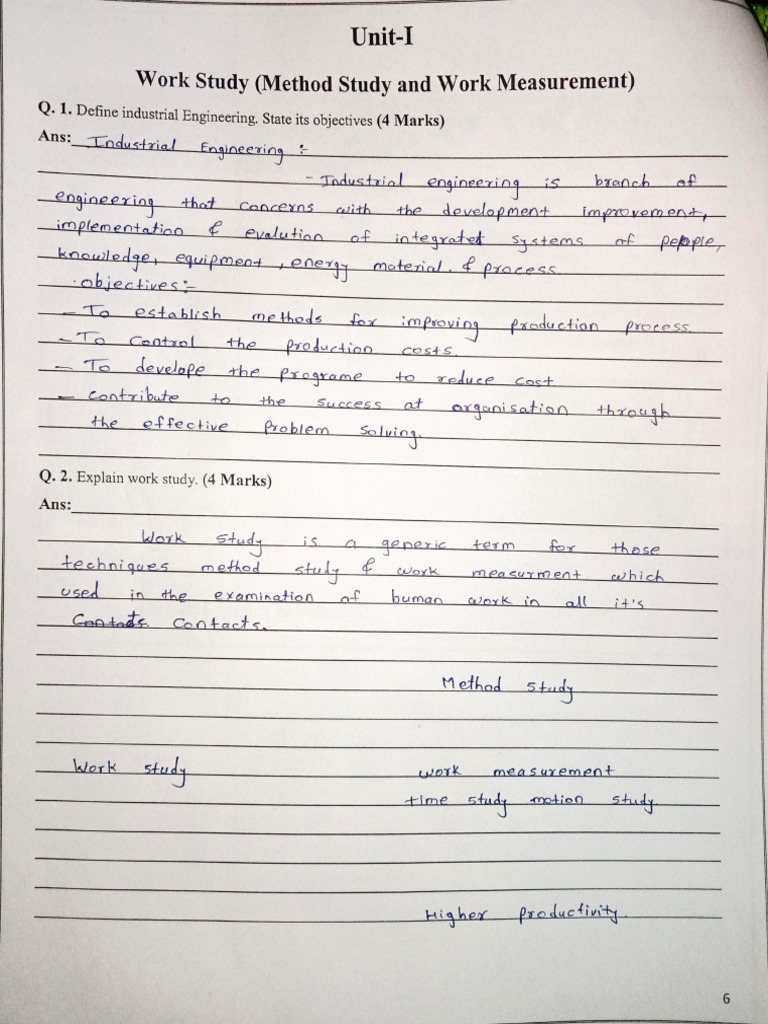 Unit-I
Work Study (Method Study and Work Measurement)
Q. 1. Define industrial Engineering. State its objectives (4 Marks)
Ans: Industrial Engineering :-
- Industrial engineering is branch of
engineering that concerns with the development improvement,
implementation & evalution of integrated systems of people,
knowledge, equipment, energy material. & process.
objectives:-
- To establish methods for improving production process.
- To control the production costs.
- To develope the programe to reduce cost
- contribute to the success at organisation through
the effective problem solving.
Q. 2. Explain work study. (4 Marks)
Ans:
Work study is a generic term for those
techniques method study & work measurment which
used in the examination of human work in all it's
Contacts.
Method study
Work study work measurement
time study motion study.
Higher productivity.
6